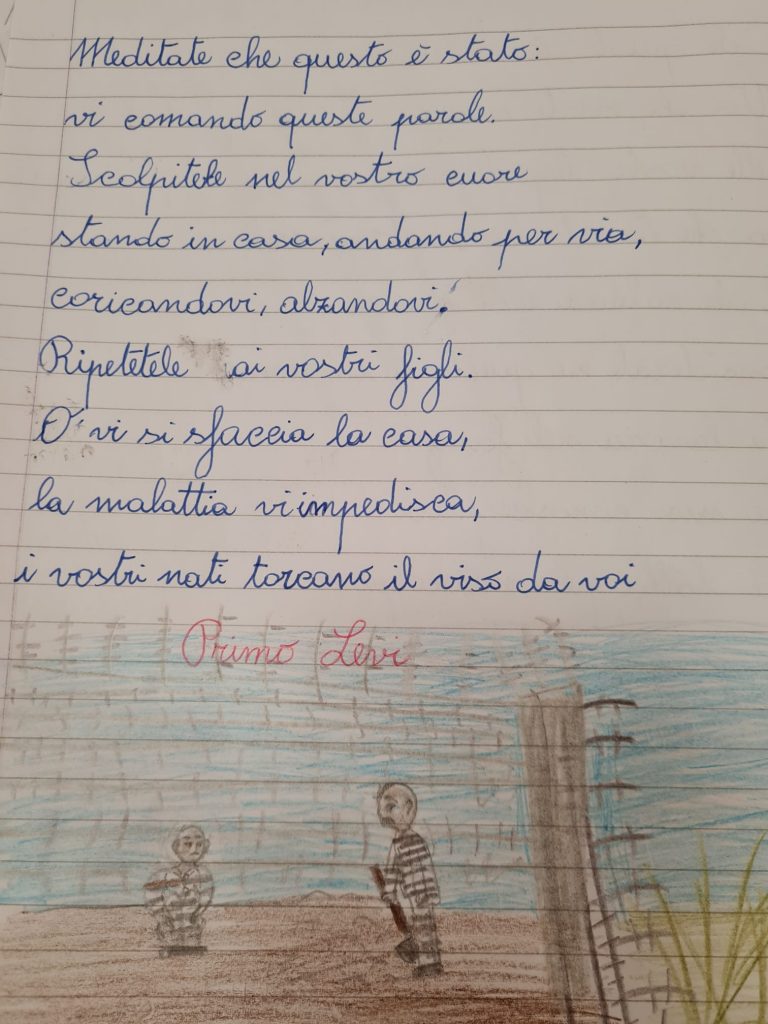 Meditate che questo è stato:
vi comando queste parole.
Scolpitele nel vostro cuore
stando in casa, andando per via,
coricandovi, alzandovi.
Ripetetele ai vostri figli.
O vi si sfaccia la casa,
la malattia vi impedisca,
i vostri nati torcano il viso da voi
Primo Levi